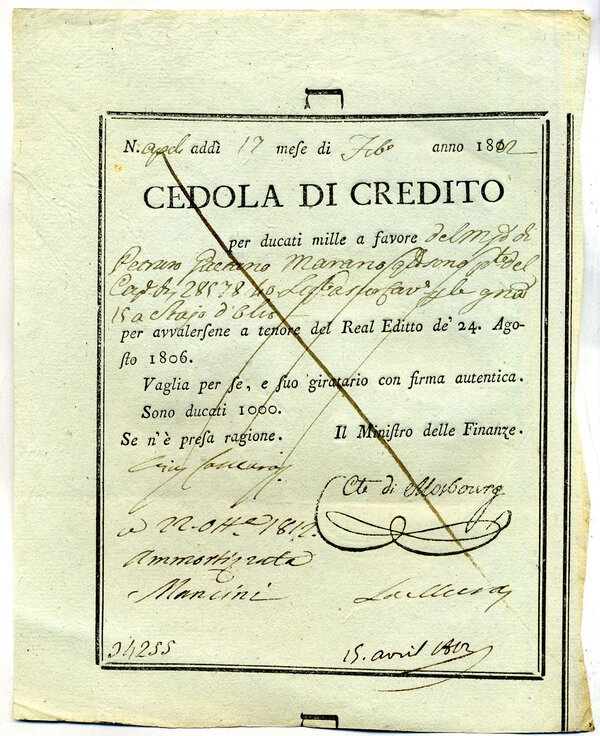 N. addì 17 meſe di Feb.o anno 1812
CEDOLA DI CREDITO
per ducati mille a favore del
Petruro Gaetano Marano del
28578
15 a Stajo d'Olio
per avvalerſene a tenore del Real Editto de' 24. Ago-
ſto 1806.
Vaglia per ſe, e ſuo giratario con firma autentica.
Sono ducati 1000.
Se n'è preſa ragione. Il Miniſtro delle Finanze.
Cte di Mosbourg
a 22 Ott.e 1812.
Ammortizzata
Mancini
34255 15. avril 1812